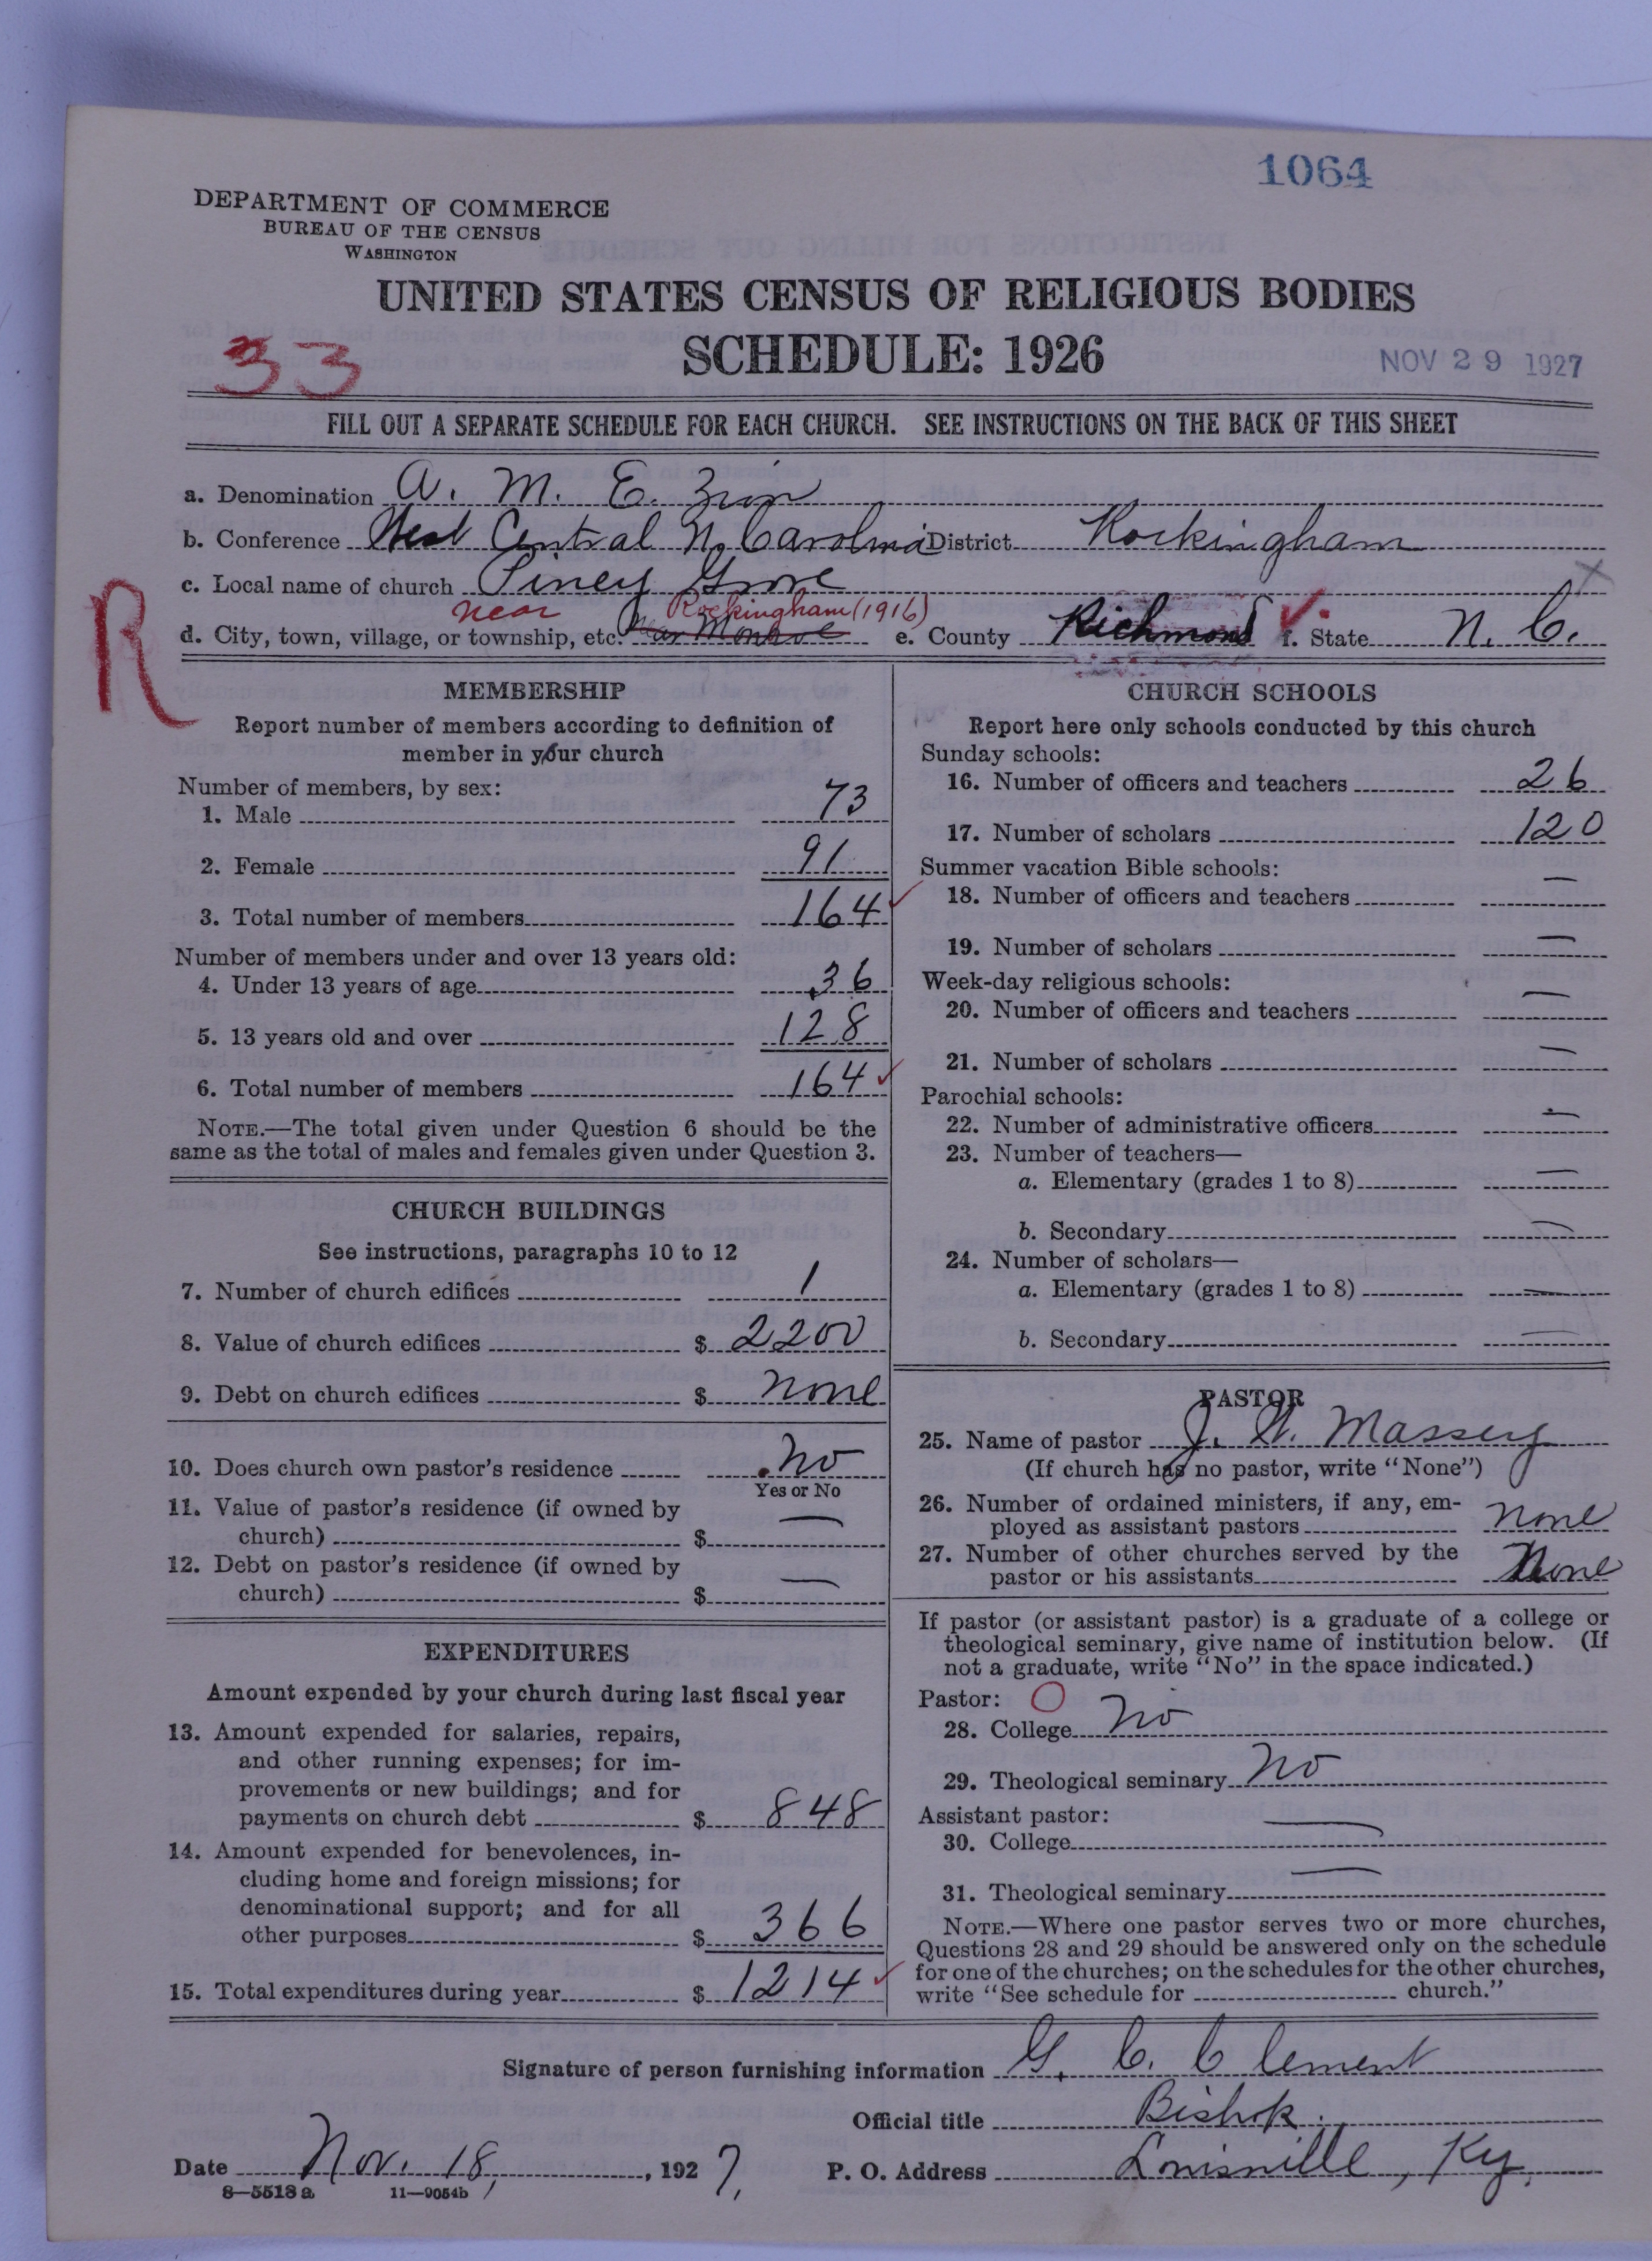 1064
DEPARTMENT OF COMMERCE
BUREAU OF THE CENSUS
WASHINGTON
UNITED STATES CENSUS OF RELIGIOUS BODIES
33
SCHEDULE: 1926
NOV 29 1927
FILL OUT A SEPARATE SCHEDULE FOR EACH CHURCH. SEE INSTRUCTIONS ON THE BACK OF THIS SHEET
a. Denomination A. M. E. Zion
b. Conference West Central N. Carolina District Rockingham
c. Local name of church Piney Grove
near Rockingham (1916)
d. City, town, village, or township, etc. Near Monroe e. County Richmond f. State N. C.
R
MEMBERSHIP
Report number of members according to definition of
member in your church
Number of members, by sex:
1. Male 73
2. Female 91
3. Total number of members 164
Number of members under and over 13 years old:
4. Under 13 years of age 36
5. 13 years old and over 128
6. Total number of members 164
NOTE.—The total given under Question 6 should be the
same as the total of males and females given under Question 3.
CHURCH BUILDINGS
See instructions, paragraphs 10 to 12
7. Number of church edifices 1
8. Value of church edifices $ 2200
9. Debt on church edifices $ none
10. Does church own pastor's residence No
Yes or No
11. Value of pastor's residence (if owned by
church) $ —
12. Debt on pastor's residence (if owned by
church) $ —
EXPENDITURES
Amount expended by your church during last fiscal year
13. Amount expended for salaries, repairs,
and other running expenses; for im-
provements or new buildings; and for
payments on church debt $ 848
14. Amount expended for benevolences, in-
cluding home and foreign missions; for
denominational support; and for all
other purposes $ 366
15. Total expenditures during year $ 1214
CHURCH SCHOOLS
Report here only schools conducted by this church
Sunday schools:
16. Number of officers and teachers 26
17. Number of scholars 120
Summer vacation Bible schools:
18. Number of officers and teachers —
19. Number of scholars —
Week-day religious schools:
20. Number of officers and teachers —
21. Number of scholars —
Parochial schools:
22. Number of administrative officers —
23. Number of teachers—
a. Elementary (grades 1 to 8) —
b. Secondary —
24. Number of scholars—
a. Elementary (grades 1 to 8) —
b. Secondary —
PASTOR
25. Name of pastor J. W. Massey
(If church has no pastor, write "None")
26. Number of ordained ministers, if any, em-
ployed as assistant pastors none
27. Number of other churches served by the
pastor or his assistants None
If pastor (or assistant pastor) is a graduate of a college or
theological seminary, give name of institution below. (If
not a graduate, write "No" in the space indicated.)
Pastor: O
28. College No
29. Theological seminary No
Assistant pastor:
30. College —
31. Theological seminary —
NOTE.—Where one pastor serves two or more churches,
Questions 28 and 29 should be answered only on the schedule
for one of the churches; on the schedules for the other churches,
write "See schedule for church."
Signature of person furnishing information G. C. Clement
Official title Bishop.
Date Nov. 18, 1927. P. O. Address Louisville, Ky.
8—5518 a 11—9054b